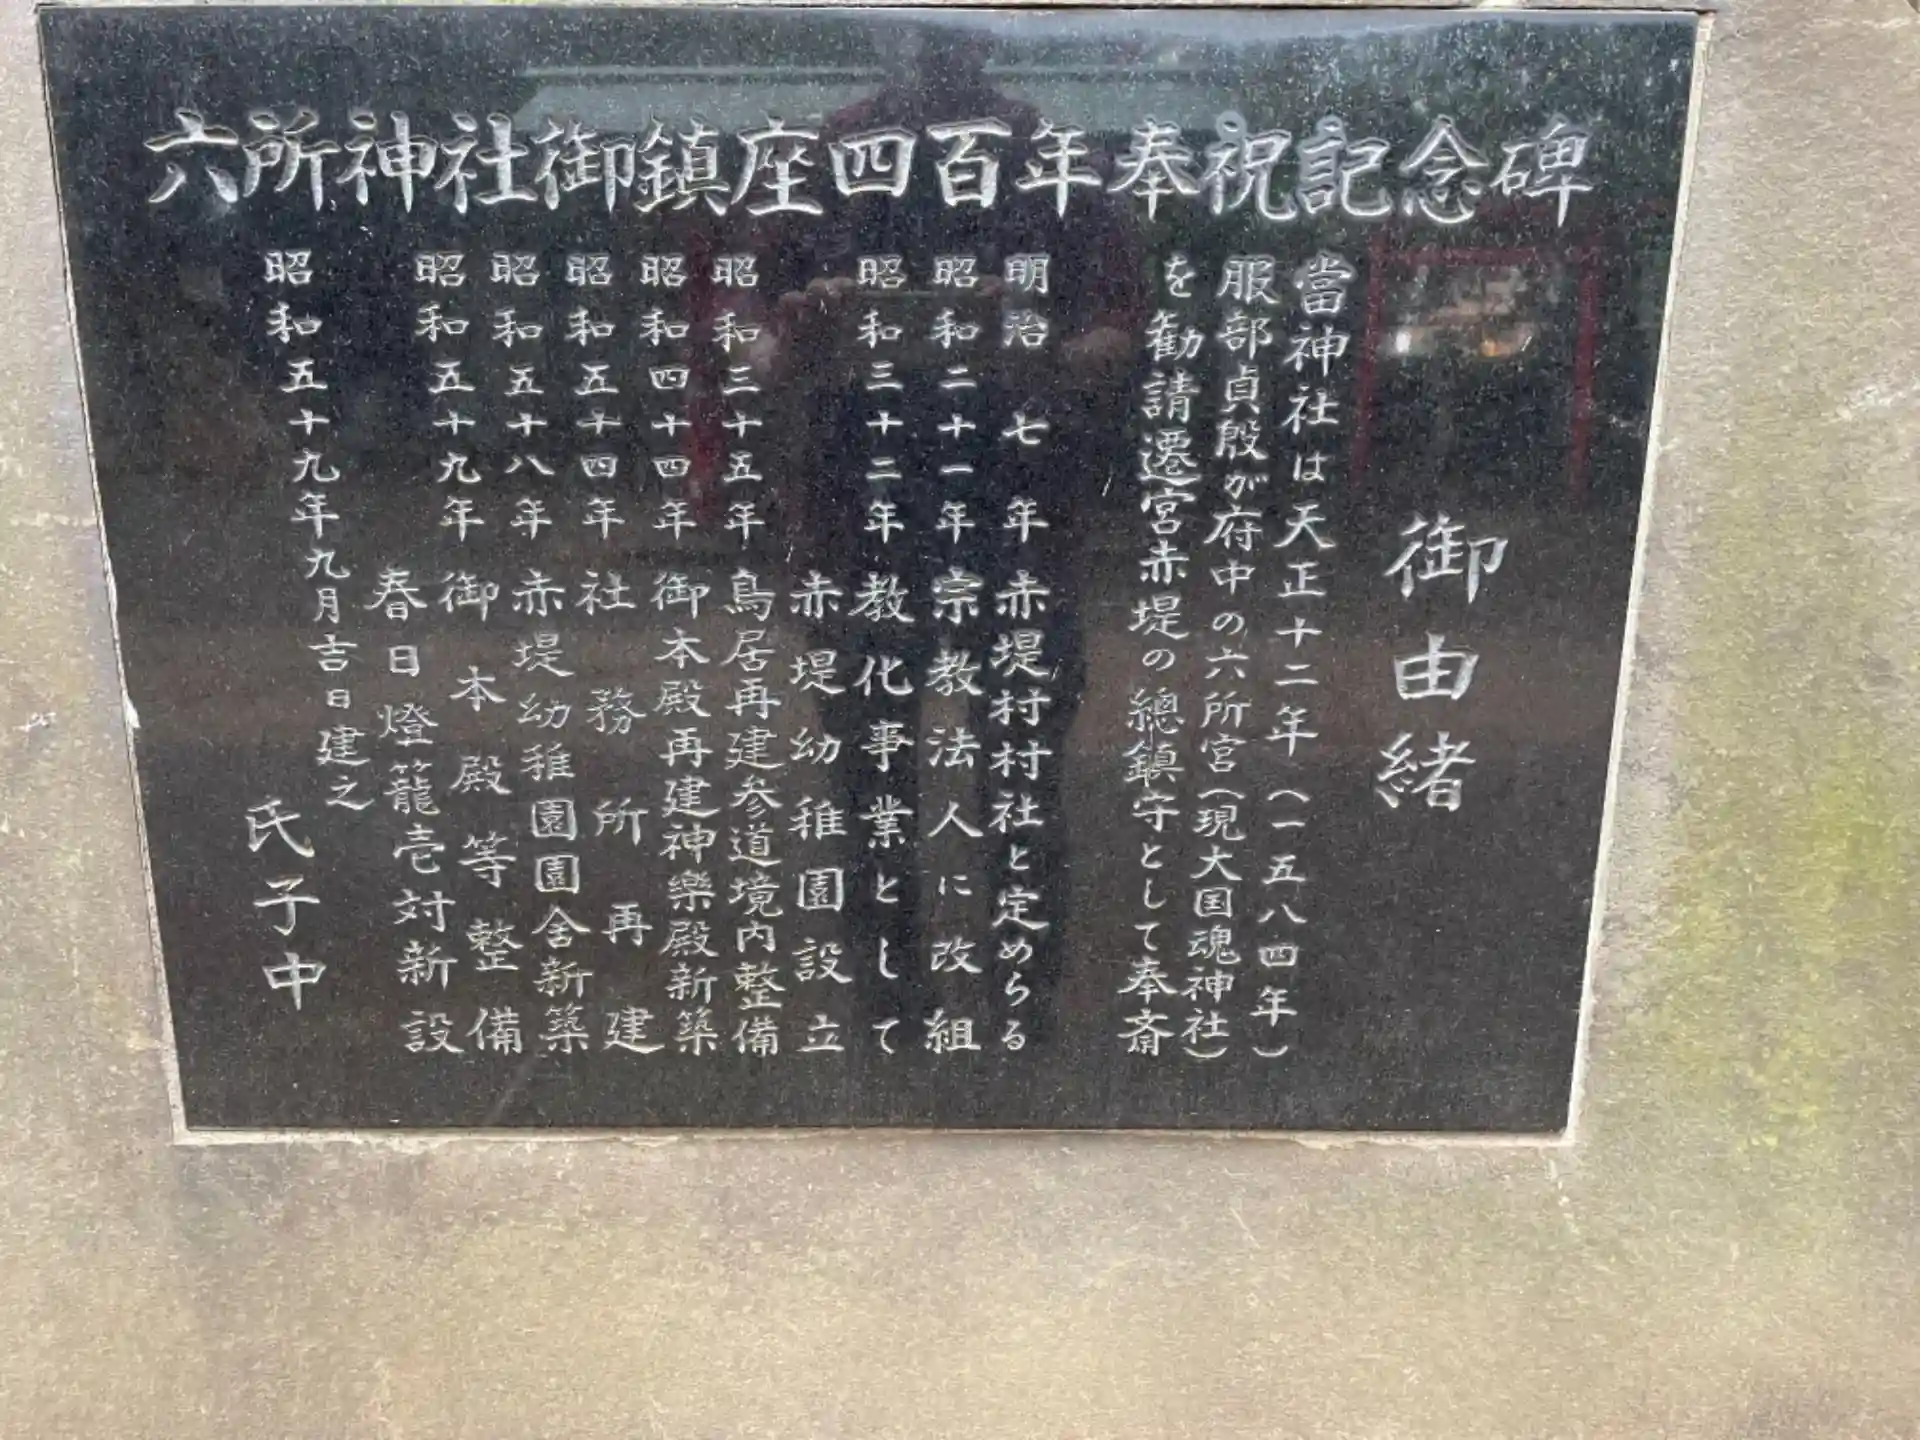 六所神社御鎮座四百年奉祝記念碑
御由緒
當神社は天正十二年（一五八四年）
服部貞殷が府中の六所宮（現大国魂神社）
を勧請遷宮赤堤の總鎮守として奉斎
明治七年　赤堤村村社と定めらる
昭和二十一年　宗教法人に改組
昭和三十二年　教化事業として
赤堤幼稚園設立
昭和三十五年　鳥居再建参道境内整備
昭和四十四年　御本殿再建神樂殿新築
昭和五十四年　社務所再建
昭和五十八年　赤堤幼稚園園舎新築
昭和五十九年　御本殿等整備
春日燈籠壱対新設
昭和五十九年九月吉日建之
氏子中